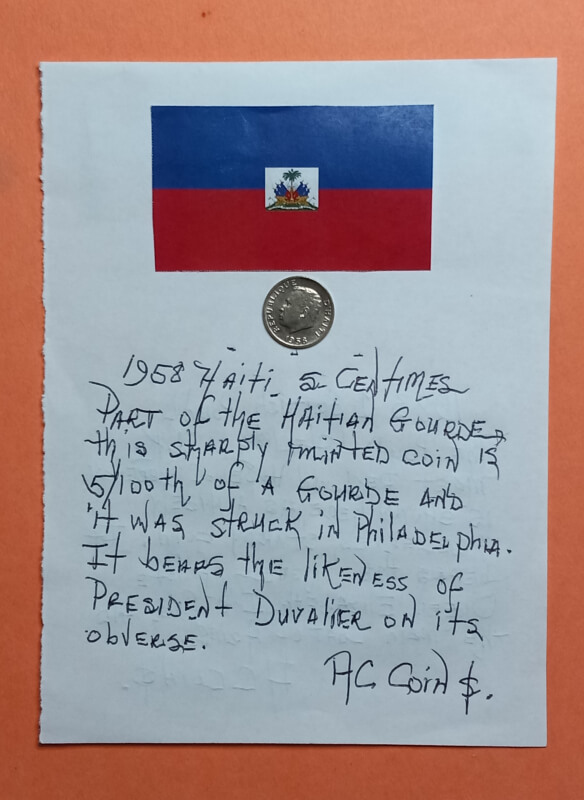 REPUBLIQUE D'HAITI
1958
1958 HAITI 5 CENTIMES
PART OF the HAITIAN GOURDE,
this sharply minted coin is
5/100th of A GOURDE AND
it WAS STRUCK in PhiladElphia.
It bEARS the likENESS of
PRESIDENT DUVALIER ON its
obvERSE.
AC Coin $.